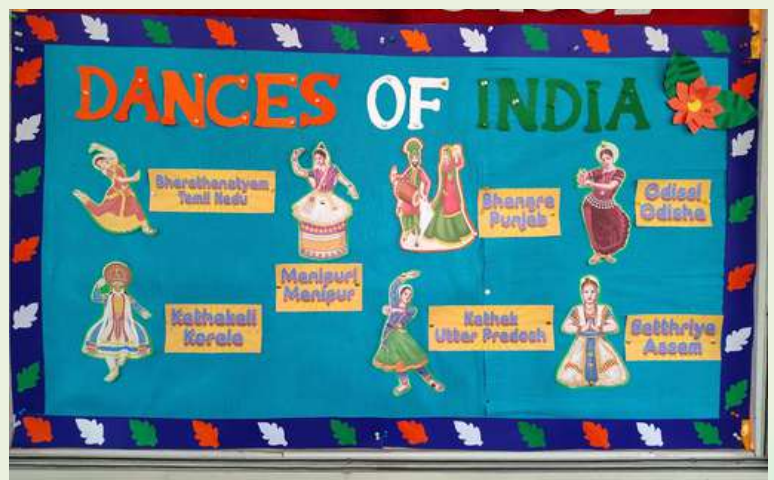 DANCES OF INDIA
Bharathanatyam
Tamil Nadu
Manipuri
Manipur
Bhangra
Punjab
Odissi
Odisha
Kathakali
Kerala
Kathak
Uttar Pradesh
Satthriya
Assam